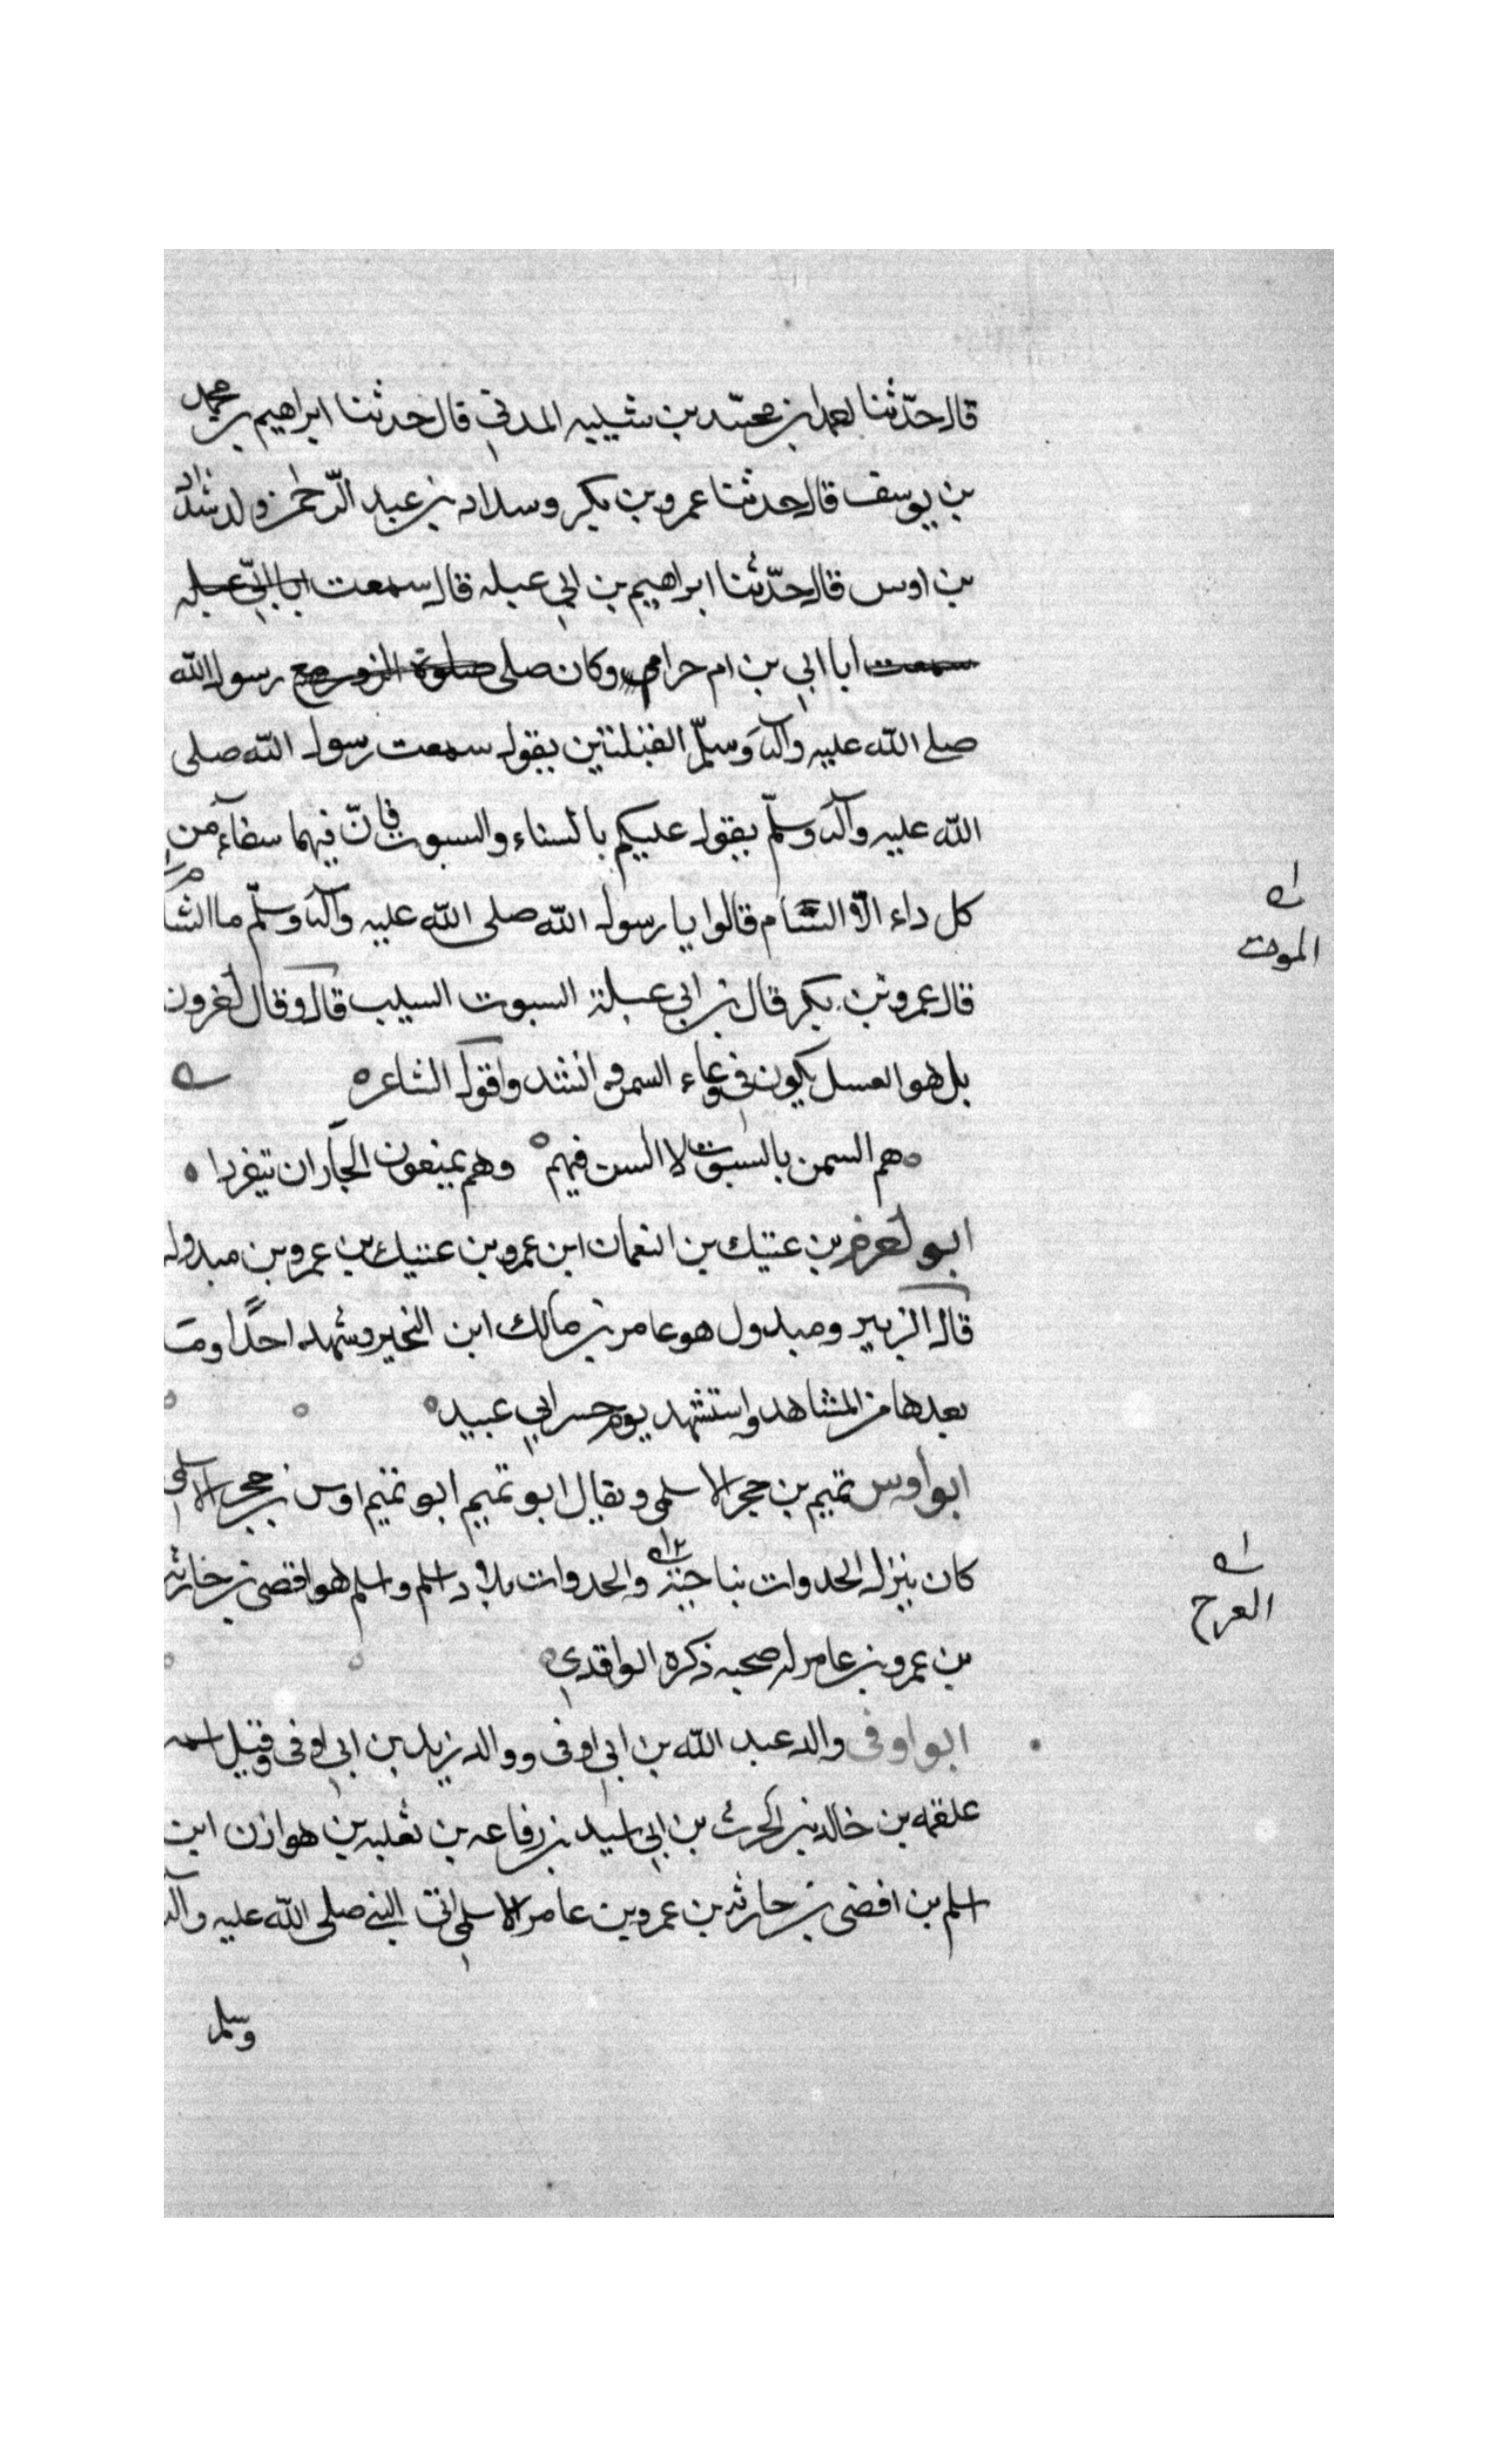 قال حدّثنا بن محمّد بن شيبه المدني قال حدثنا ابراهيم بن محمد
بن يوسف قال حدثنا عمرو بن بكر وسداد بن عبد الرّحمن ولد شداد
بن اوس قال حدّثنا ابراهيم بن ابي عبله قال سمعت ابا ابيّ عبله
سمعت ابا ابي بن ام حرام وكان صلى صلوة مع رسول الله
صلى الله عليه وآله وسلّم القبلتين يقول سمعت رسول الله صلى
الله عليه وآله وسلّم يقول عليكم بالسناء والسبوت فانّ فيهما سفاء من
كل داء الّا السام قالوا يا رسول الله صلى الله عليه وآله وسلّم ما الشا
الموت
قال عمرو بن بكر قال بن ابي عبلة السبوت السليب قال وقال
بل هو العسل يكون في وعاء السمن وانشد واقول الشاعر
هم السمن بالسبوت لا الست فيهم وهم يمنعون الجار ان تيفردا
ابو بن عتيك بن النعمان ابن عمرو بن عتيك بن عمرو بن مبدول
قال الزبير ومبدول هو عامر بن مالك ابن النجير وشهد احدًا وما
بعدها من المشاهد واستشهد يوم جسر ابي عبيد
ابو اوس تميم بن حجر الاسلمي ويقال ابو تميم ابو تميم اوس بن حجر الاسلمي
كان ينزل الحدوات بناحية والحدوات بلاد اسلم واسلم هو افصى بن خارثه
العرج
بن عمرو بن عامر له صحبه ذكره الواقدي
ابو اوفى والد عبد الله بن ابي اوفى ووالد زيد بن ابي اوفى وقيل اسمه
علقمه بن خالد بن الحرث بن ابي اسيد بن رفاعه بن ثعلبه بن هوازن ابن
اسلم بن افصى بن حارثه بن عمرو بن عامر الاسلمي اتى النبي صلى الله عليه وآله
وسلم